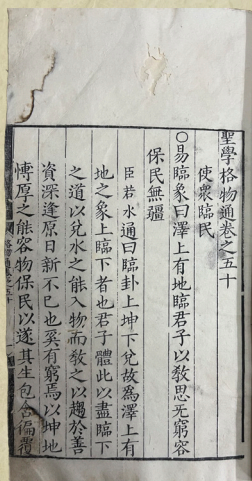 聖學格物通卷之五十
使衆臨民
○易臨象曰澤上有地臨君子以教思无窮容
保民無疆
臣若水通曰臨卦上坤下兌故為澤上有
地之象上臨下者也君子體此以盡臨下
之道以兌水之能入物而教之以趨於善
資深逢原日新不已也奚有窮焉以坤地
博厚之能容物保民以遂其生包含徧覆